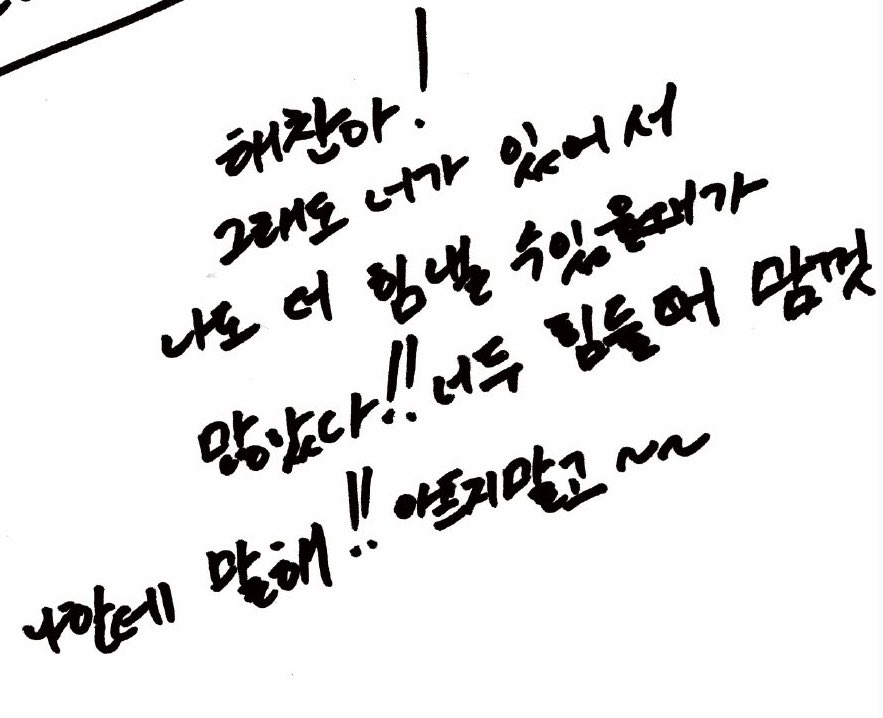 해찬아!
그래도 너가 있어서
나도 더 힘낼 수있을때가
많았다!! 너두 힘들어 맘껏
나한테 말해!! 아프지말고~~